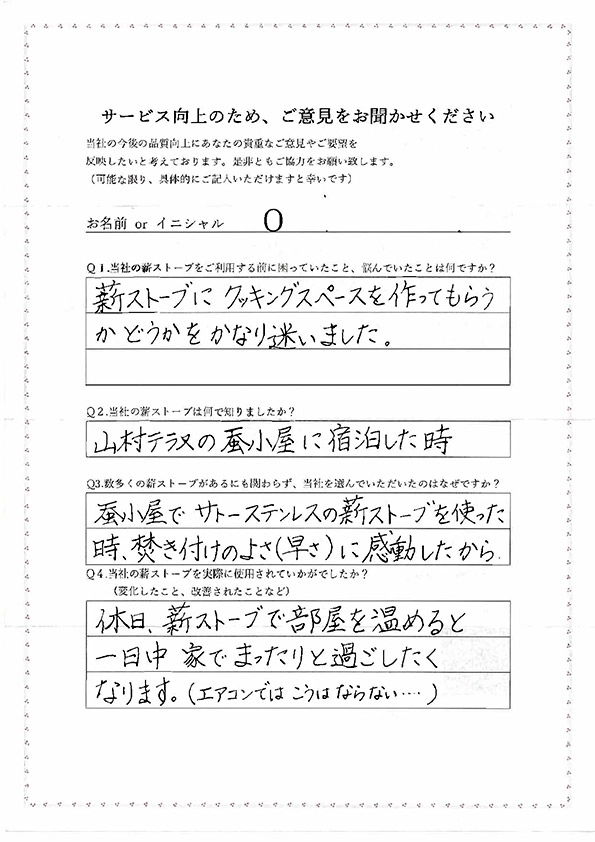 サービス向上のため、ご意見をお聞かせください
当社の今後の品質向上にあなたの貴重なご意見やご要望を
反映したいと考えております。是非ともご協力をお願い致します。
（可能な限り、具体的にご記入いただけますと幸いです）
お名前 or イニシャル O
Q1.当社の薪ストーブをご利用する前に困っていたこと、悩んでいたことは何ですか？
薪ストーブに クッキングスペースを作ってもらう
か どうかを かなり迷いました。
Q2.当社の薪ストーブは何で知りましたか？
山村テラスの蚕小屋に宿泊した時
Q3.数多くの薪ストーブがあるにも関わらず、当社を選んでいただいたのはなぜですか？
蚕小屋で サトーステンレスの薪ストーブを使った
時、焚き付けのよさ(早さ)に感動したから.
Q4.当社の薪ストーブを実際に使用されていかがでしたか？
（変化したこと、改善されたことなど）
休日、薪ストーブで部屋を温めると
一日中 家で まったりと過ごしたく
なります。(エアコンでは こうは ならない‥‥)